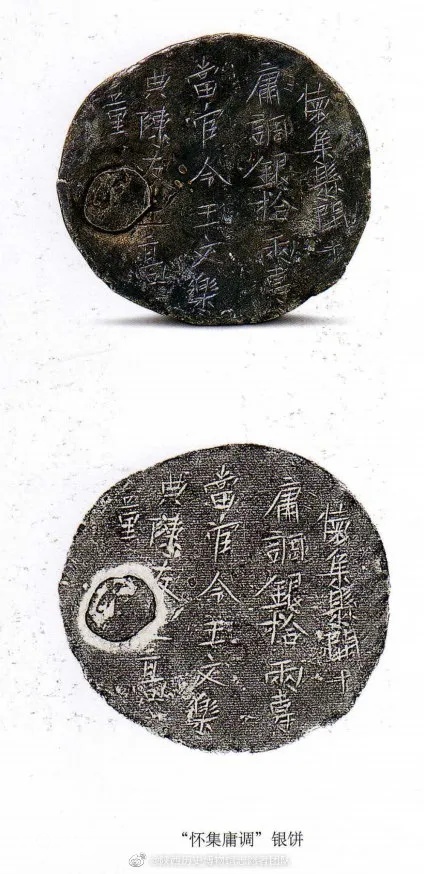 懷集縣開十
庸調銀拾兩專
當官令王文樂
典陳友匠高
童
懷集縣開十
庸調銀拾兩專
當官令王文樂
典陳友匠高
童
“怀集庸调”银饼